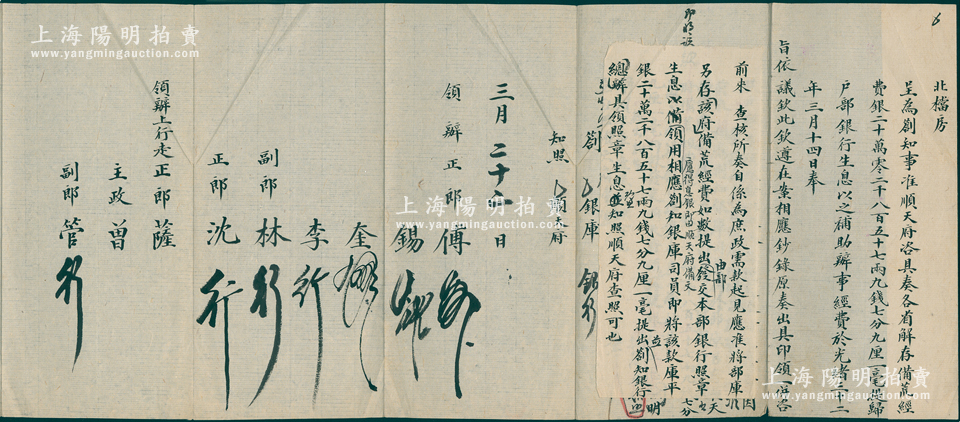 6
北檔房
呈為劄知事准順天府咨具奏各省解存備荒經
費銀二十萬零二千八百五十七兩九錢七分九厘一毫提歸
戶部銀行生息以之補助辦事經費於光緒三十二
年三月十四日奉
旨依議欽此欽遵在案相應鈔錄原奏出具印領一併咨
前來 查核所奏自係為庶政需款起見應准將部庫
另存該府備荒經費如數提出發交本部銀行照章
由部
生息以備領用相應劄知銀庫司員即將該款庫平
應得息銀即由順天府備文
銀二十萬二千八百五十七兩九錢七分九厘一毫提出劄知銀行
總辦具領照章生息並知照順天府查照可也
劄 銀庫
知照 順天府
三月二十 日
領辦正郎 傅
錫
奎
李 行
副郎 林
正郎 沈 行
領辦上行走正郎 薩
主政 曾
副郎 管
上海陽明拍賣
www.yangmingauction.com
上海陽明拍賣
www.yangmingauction.com
上海陽明拍賣
www.yangmingauction.com
上海陽明拍賣
www.yangmingauction.com